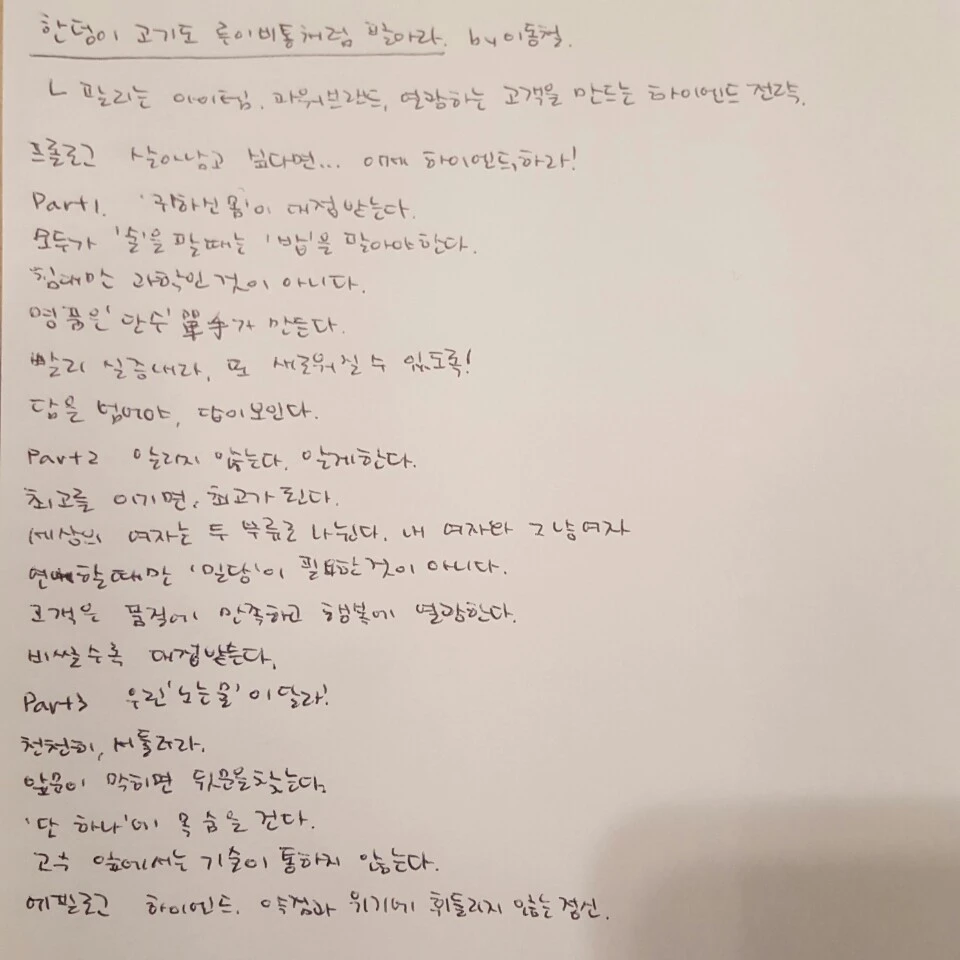 한덩이 고기도 루이비통처럼 팔아라. by 이동철.
ㄴ 팔리는 아이템. 파워브랜드, 열광하는 고객을 만드는 하이엔드 전략.
프롤로그 살아남고 싶다면... 이제 하이엔드하라!
Part1. '귀하신 몸'이 대접 받는다.
모두가 '술'을 팔때는 '밥'을 팔아야한다.
침대만 과학인 것이 아니다.
명품은 '단수' 單手가 만든다.
빨리 싫증내라, 또 새로워질 수 있도록!
답을 덮어야, 답이보인다.
Part2 알리지 않는다. 알게한다.
최고를 이기면, 최고가 된다.
세상의 여자는 두 부류로 나뉜다. 내 여자와 그냥여자
연애할때만 '밀당'이 필요한것이 아니다.
고객은 품질에 만족하고 행복에 열광한다.
비쌀수록 대접받는다.
Part3 우린 '노는물'이 달라!
천천히, 서둘러라.
앞문이 막히면 뒷문을 찾는다.
'단 하나'에 목숨을 건다.
고수 앞에서는 기술이 통하지 않는다.
에필로그 하이엔드. 약점과 위기에 휘둘리지 않는 정신.